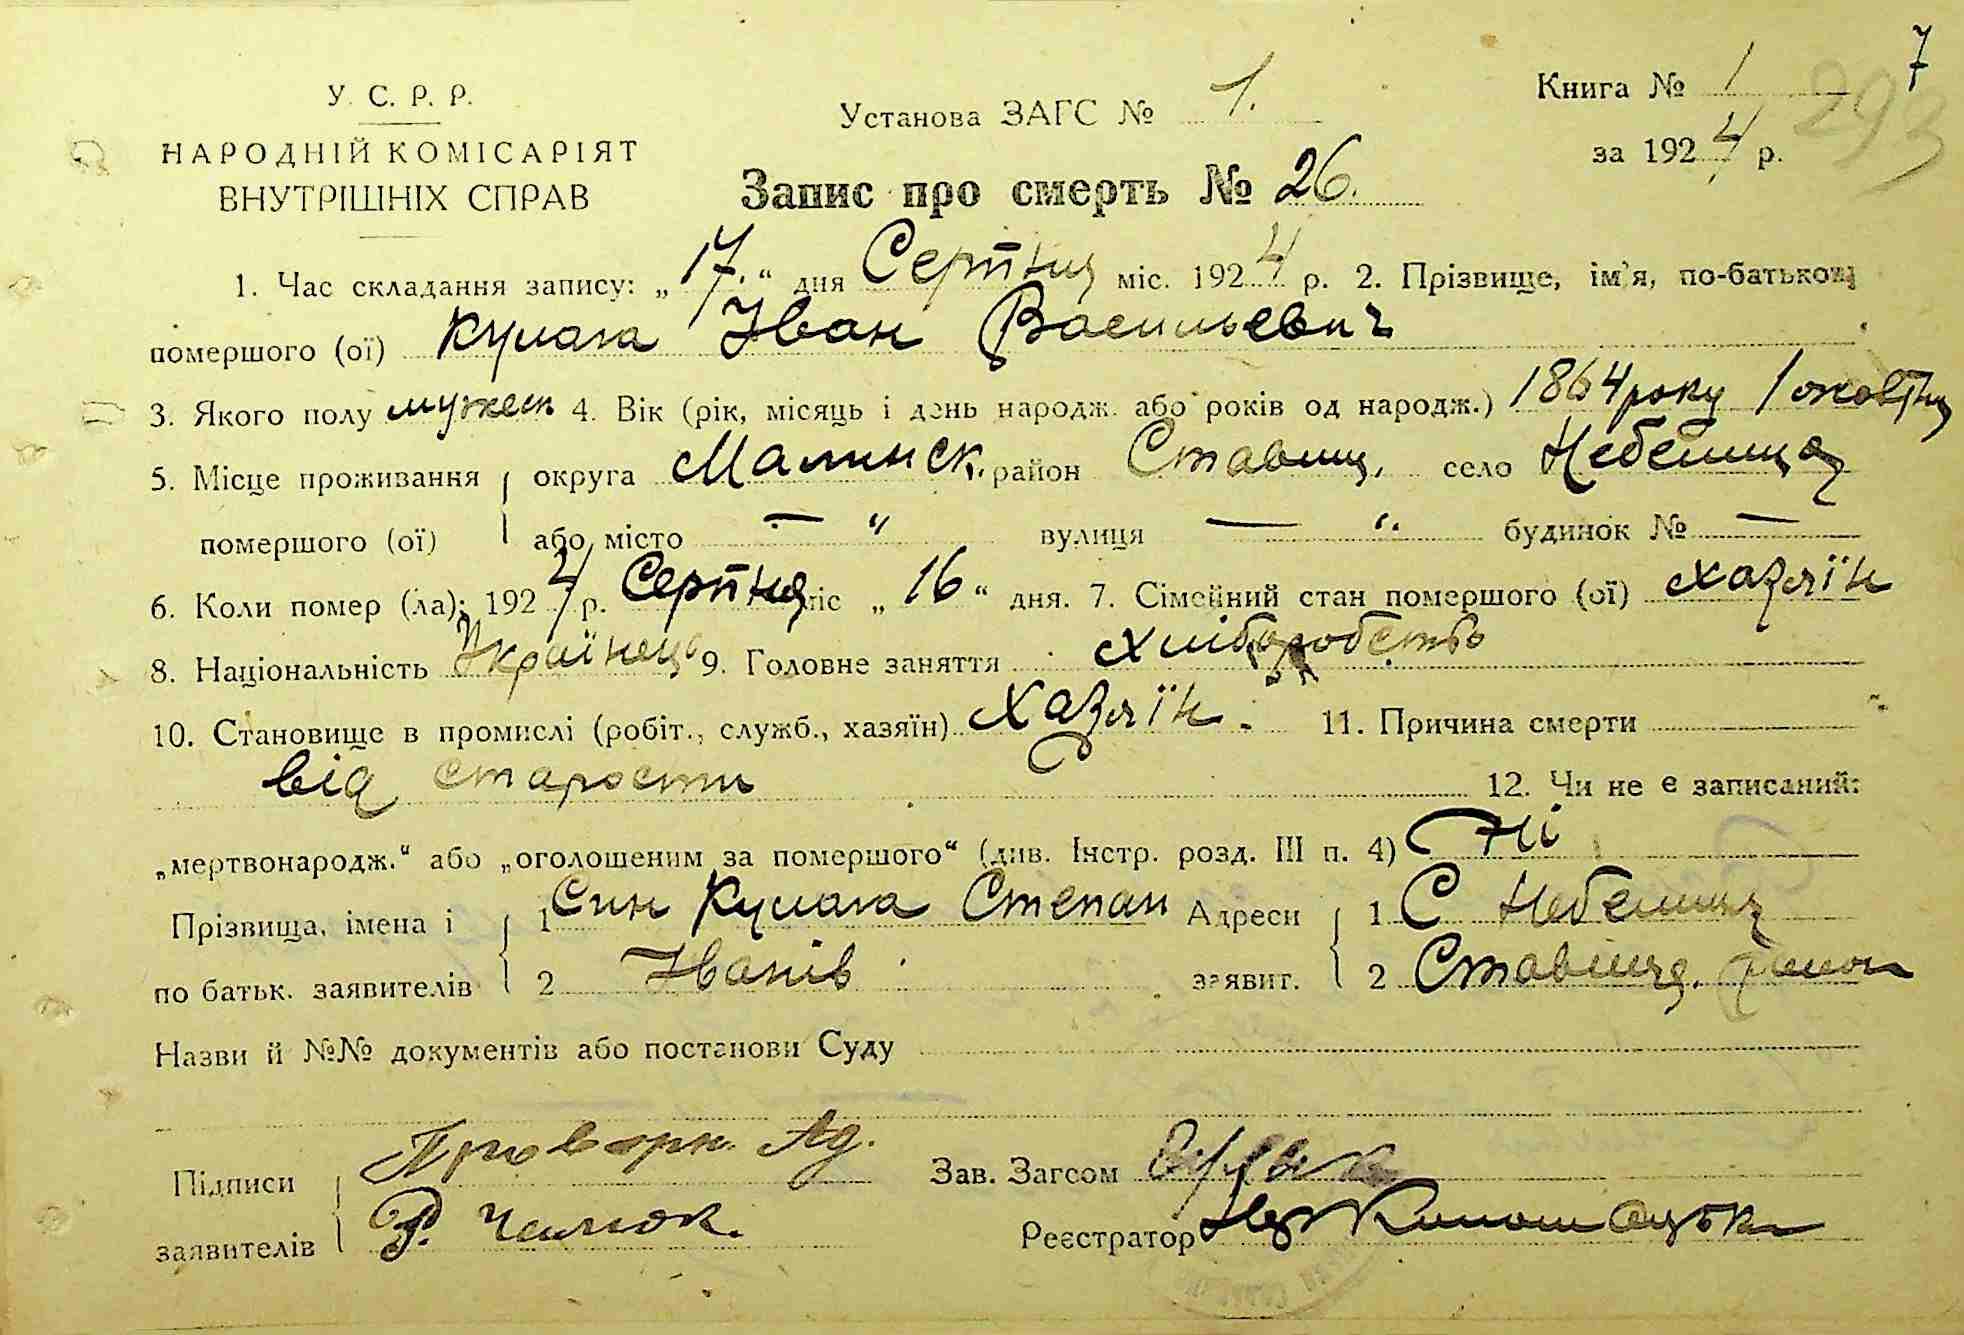 7
У. С. Р. Р.
НАРОДНІЙ КОМІСАРІЯТ
ВНУТРІШНІХ СПРАВ
Установа ЗАГС № 1.
Книга № 1
за 1924 р.
293
Запис про смерть № 26.
1. Час складання запису: „17.“ дня Серпня міс. 1924 р. 2. Прізвище, ім'я, по-батькові
помершого (ої) Кулага Іван Васильевич
3. Якого полу мужеск 4. Вік (рік, місяць і день народж. або років од народж.) 1864 року 1 жовтня
5. Місце проживання округа Малинск. район Ставищ. село Небелица
помершого (ої) або місто — " вулиця — " будинок № —
6. Коли помер (ла): 1924 р. Серпня міс „16“ дня. 7. Сімейний стан помершого (ої) хазяїн
8. Національність Українець 9. Головне заняття хліборобство
10. Становище в промислі (робіт., служб., хазяїн) Хазяїн. 11. Причина смерти
від старости 12. Чи не є записаний:
„мертвонародж.“ або „оголошеним за помершого“ (див. Інстр. розд. III п. 4) Ні
Прізвища, імена і 1 Син Кулага Степан Адреси 1 С Небелиця
по батьк. заявителів 2 Іванів заявит. 2 Ставищ. район
Назви й №№ документів або постанови Суду
Підписи Зав. Загсом
заявителів Р. Реєстратор